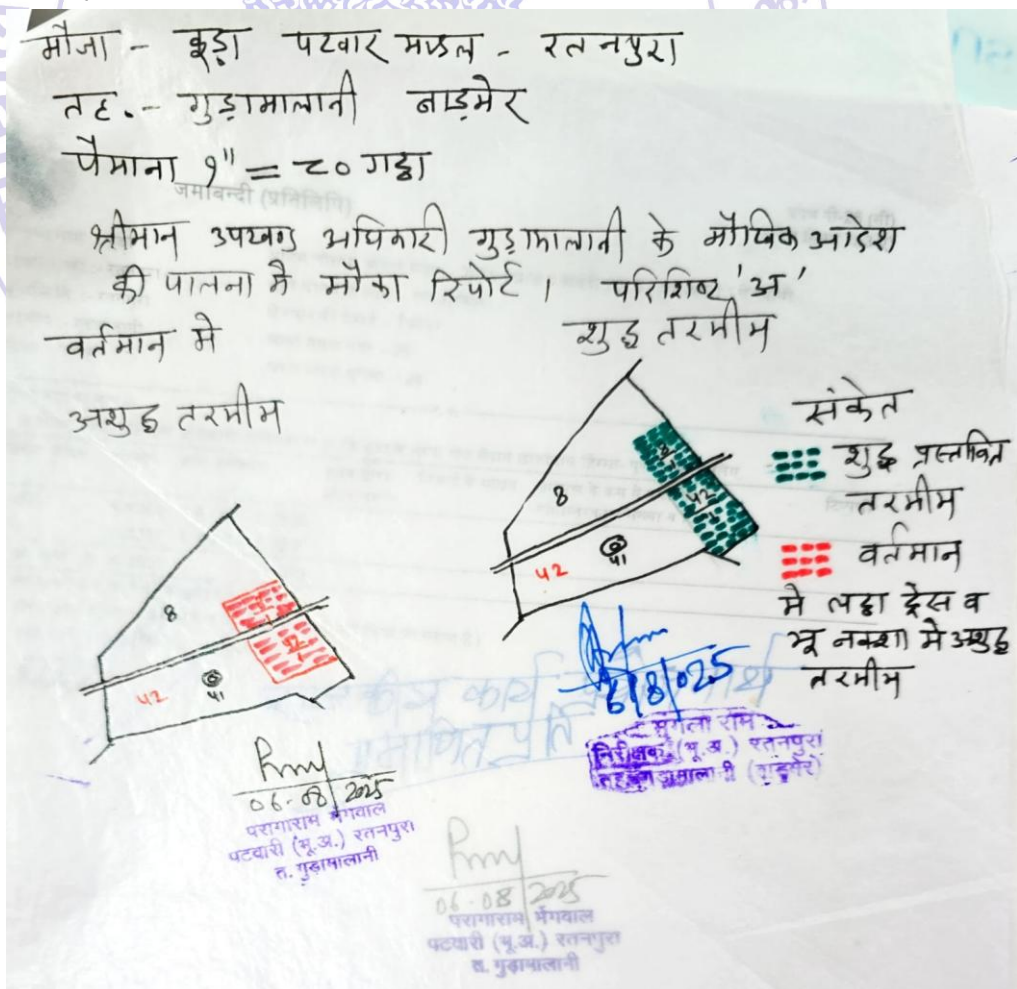 मौजा - कूड़ा पटवार मण्डल - रतनपुरा
तह. - गुड़ामालानी बाड़मेर
पैमाना १" = २० गट्ठा
जमाबन्दी (प्रतिलिपि)
श्रीमान उपखण्ड अधिकारी गुड़ामालानी के मौखिक आदेश
की पालना मे मौका रिपोर्ट । परिशिष्ट 'अ'
वर्तमान मे
अशुद्ध तरमीम
शुद्ध तरमीम
संकेत
शुद्ध प्रस्तावित
तरमीम
वर्तमान
मे लट्ठा ट्रेस व
भू नक्शा मे अशुद्ध
तरमीम
8
42
41
8
42
41
06-08-2025
परागाराम मेगवाल
पटवारी (भू.अ.) रतनपुरा
त. गुड़ामालानी
6/8/025
मुगला राम
निरीक्षक (भू.अ.) रतनपुरा
गुड़ामालानी (बाड़मेर)
06-08-2025
परागाराम मेंगवाल
पटवारी (भू.अ.) रतनपुरा
त. गुड़ामालानी